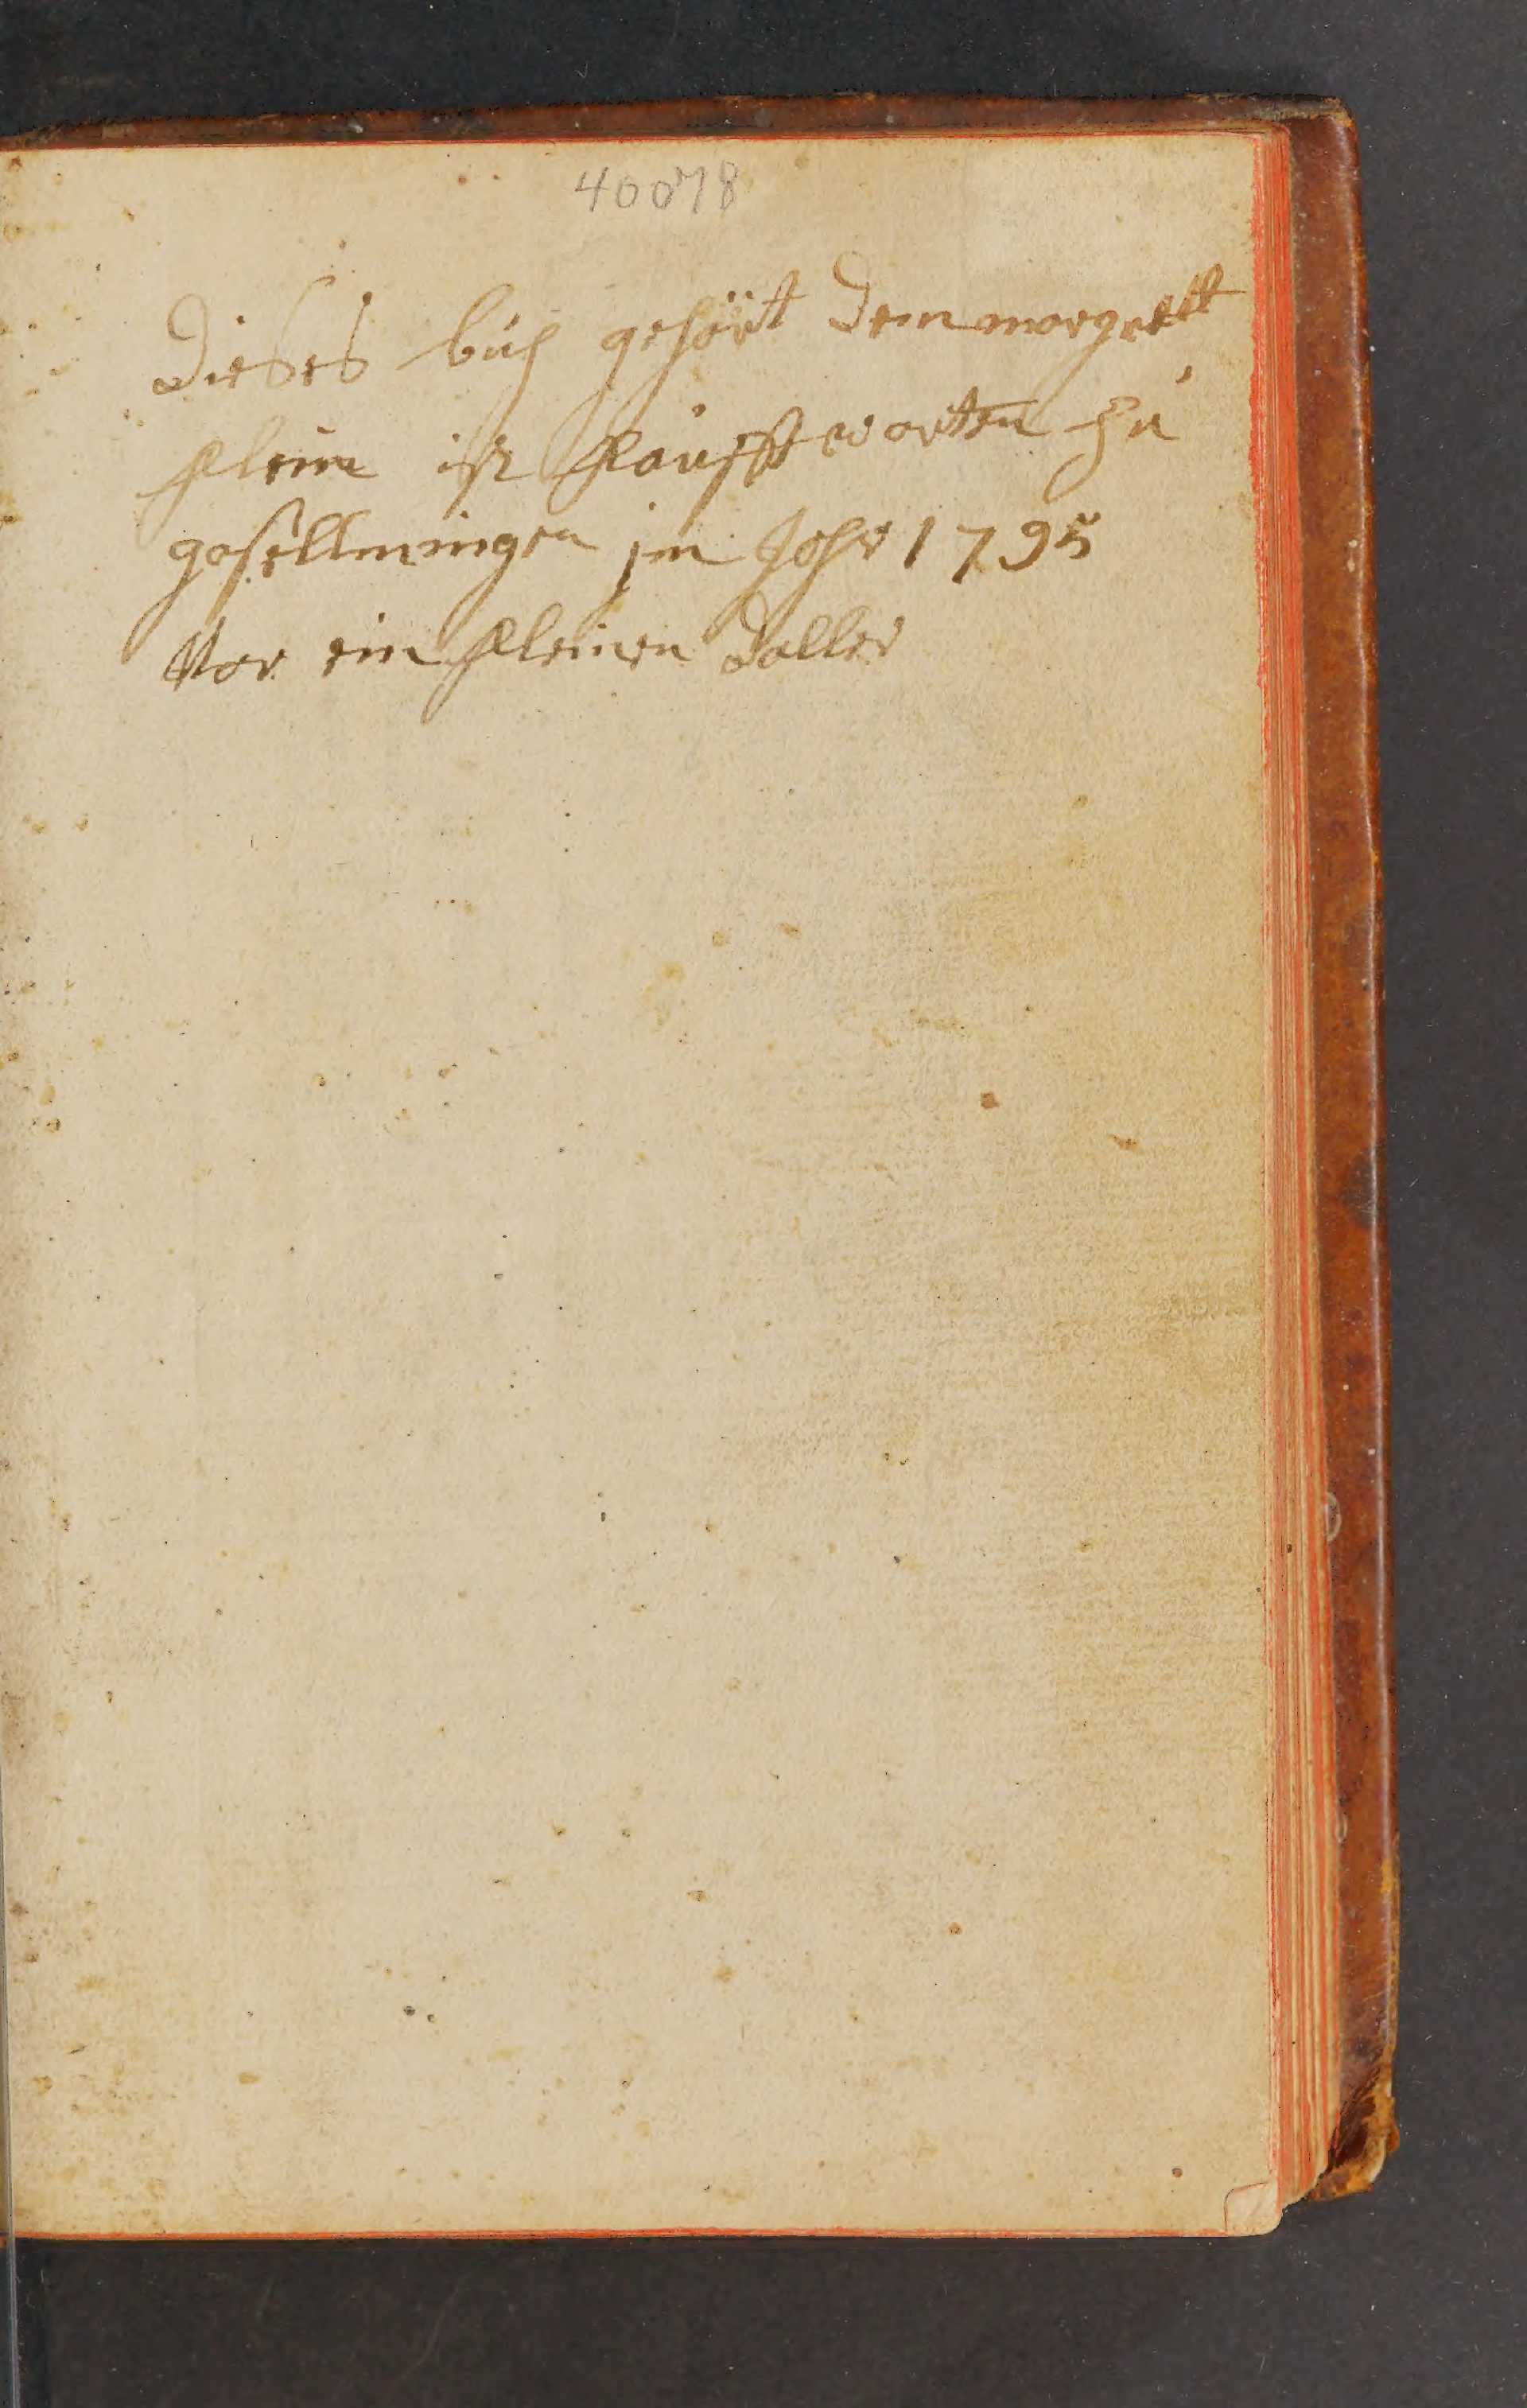 40078
Dieses buch gehört dem margrett
klein ist kaufft worten zu
gosellmingen im Johr 1795
Vor ein kleinen Daller